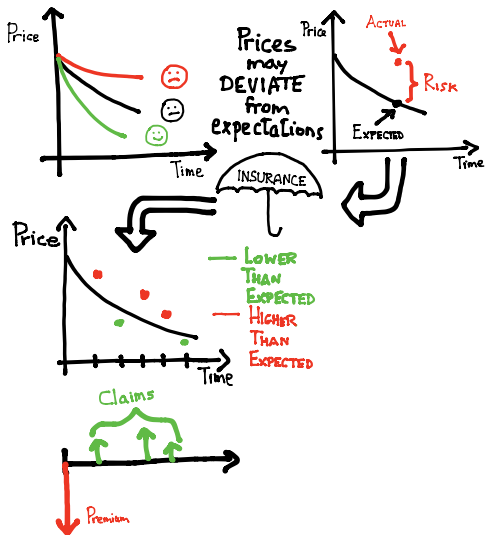 Price
Time
Prices
may
DEVIATE
from
expectations
Price
ACTUAL
RISK
EXPECTED
Time
INSURANCE
Price
Time
LOWER
THAN
EXPECTED
HIGHER
THAN
EXPECTED
Claims
Premium